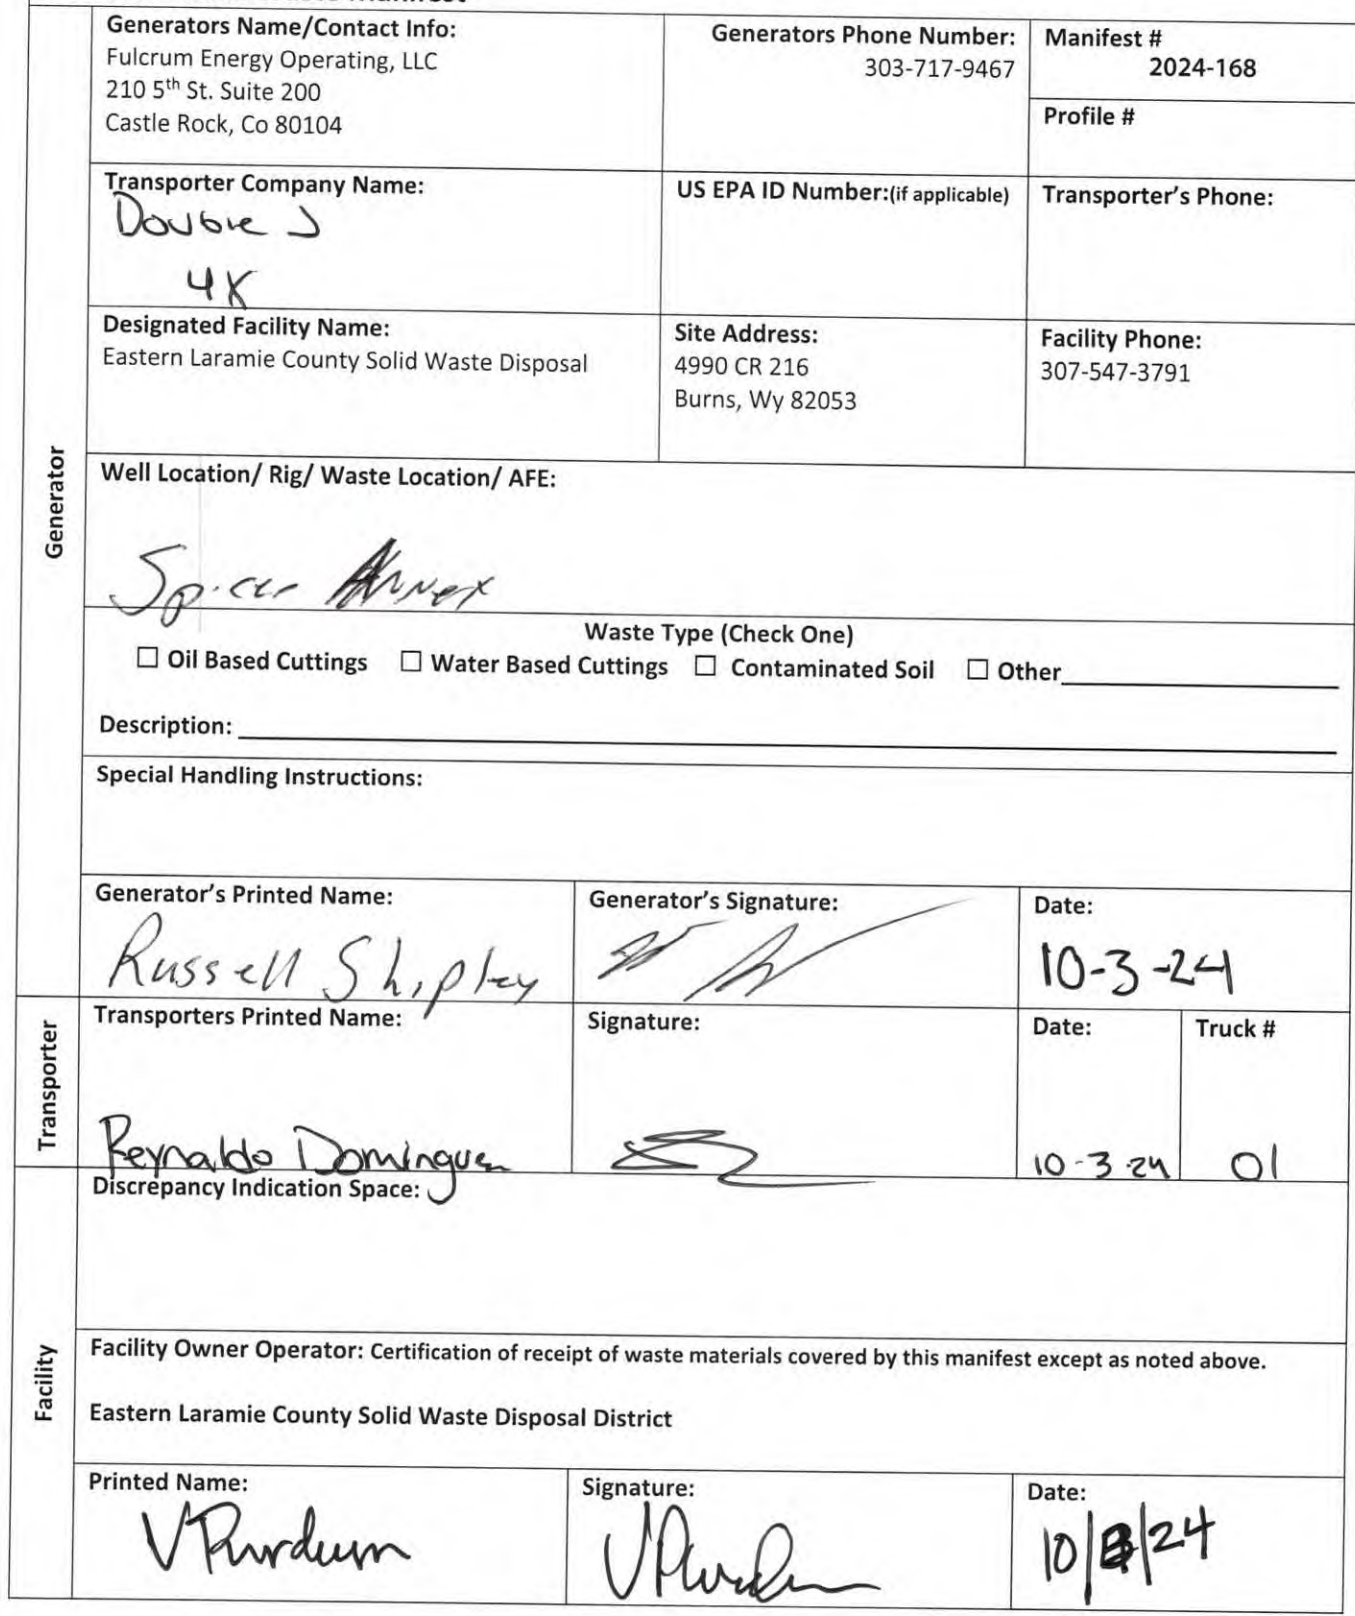 Generators Name/Contact Info:
Fulcrum Energy Operating, LLC
210 5th St. Suite 200
Castle Rock, Co 80104
Generators Phone Number:
303-717-9467
Manifest #
2024-168
Profile #
Transporter Company Name:
Double J
4K
US EPA ID Number:(if applicable)
Transporter's Phone:
Designated Facility Name:
Eastern Laramie County Solid Waste Disposal
Site Address:
4990 CR 216
Burns, Wy 82053
Facility Phone:
307-547-3791
Generator
Well Location/ Rig/ Waste Location/ AFE:
Spicer Annex
Waste Type (Check One)
☐ Oil Based Cuttings ☐ Water Based Cuttings ☐ Contaminated Soil ☐ Other
Description:
Special Handling Instructions:
Generator's Printed Name:
Russell Shipley
Generator's Signature:
Date:
10-3-24
Transporter
Transporters Printed Name:
Reynaldo Dominguez
Signature:
Date:
10-3-24
Truck #
01
Facility
Discrepancy Indication Space:
Facility Owner Operator: Certification of receipt of waste materials covered by this manifest except as noted above.
Eastern Laramie County Solid Waste Disposal District
Printed Name:
V Purdum
Signature:
V Purdum
Date:
10/3/24